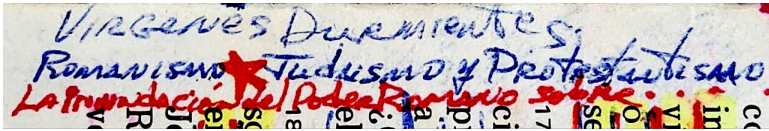 Virgenes Durmientes.
Romanismo ★ Judaismo y Protestantismo
La inundación del Poder Romano sobre. . . .